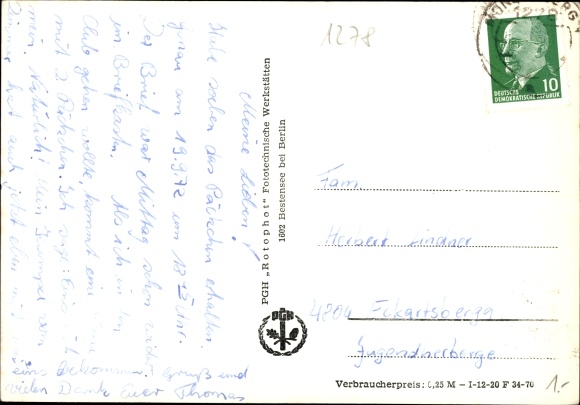 Meine Lieben!
Habe soeben das Päckchen erhalten
genau am 19.9.72 um 18 Uhr.
Der Brief war Mittag schon
im Briefkasten. Als ich in den
Club gehen wollte, kommt
mit 2 Päckchen. Ich
mein Natürlich! Mein
hat auch jetzt eben
eins bekommen. Gruß und
vielen Dank Euer Thomas
PGH „Rotophot" Fototechnische Werkstätten
1602 Bestensee bei Berlin
PGH
1278
DEUTSCHE
DEMOKRATISCHE REPUBLIK
10
Fam.
Herbert Lindner
4804 Eckartsberga
Jugendherberge
Verbraucherpreis: 0,25 M – I-12-20 F 34-70
1.-